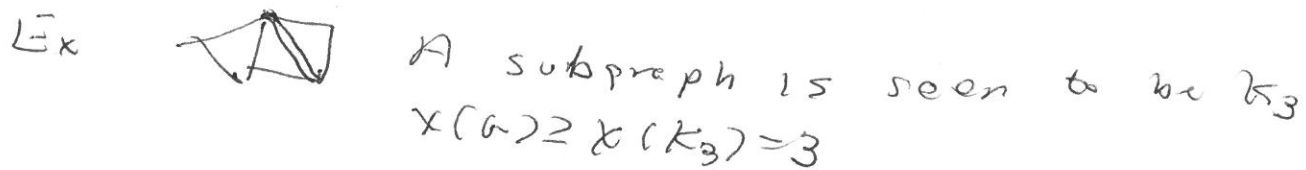 Ex A subgraph is seen to be K₃
χ(G) ≥ χ(K₃) = 3